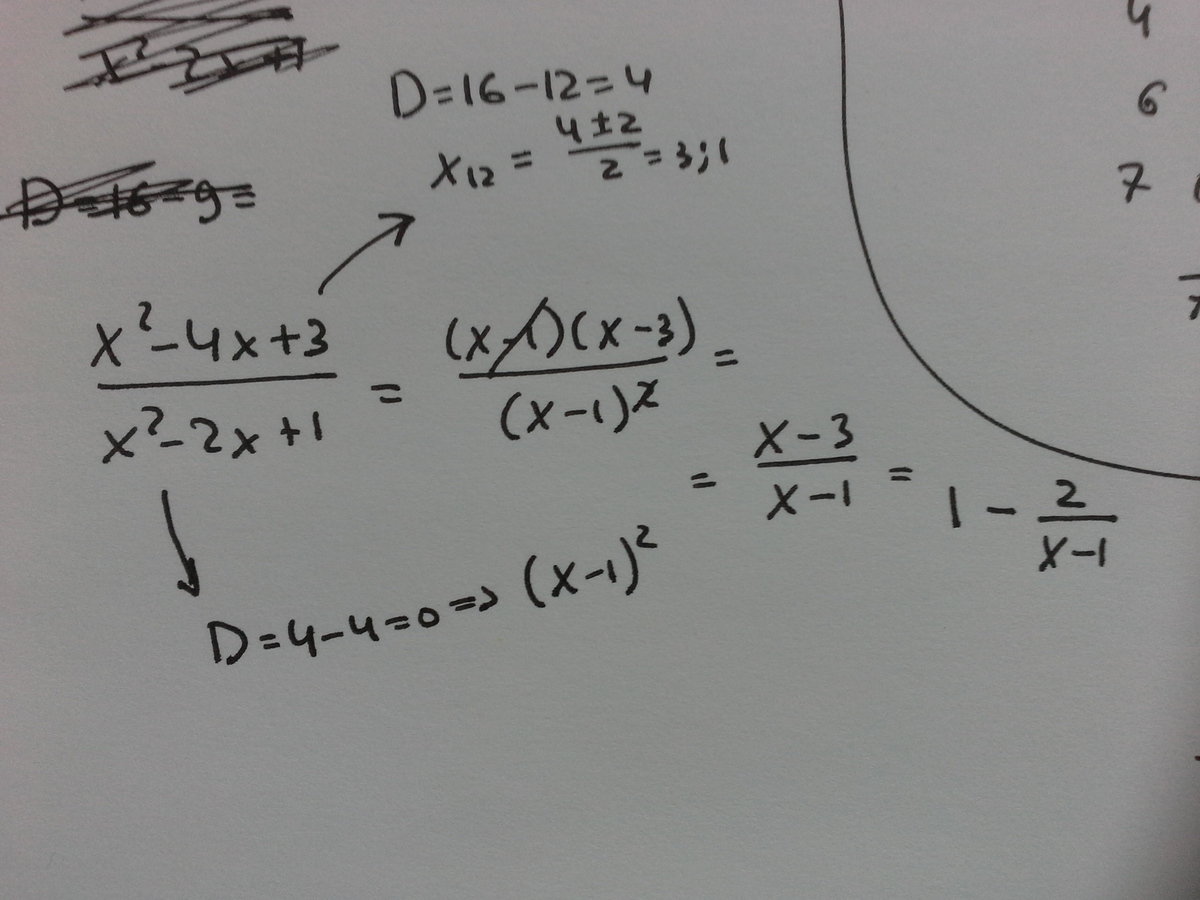 x²-2x+1
D=16-12=4
x₁₂ = (4±2)/2 = 3;1
D=16-9=
(x²-4x+3)/(x²-2x+1) = ((x-1)(x-3))/(x-1)² =
= (x-3)/(x-1) = 1 - 2/(x-1)
D=4-4=0 => (x-1)²
4
6
7